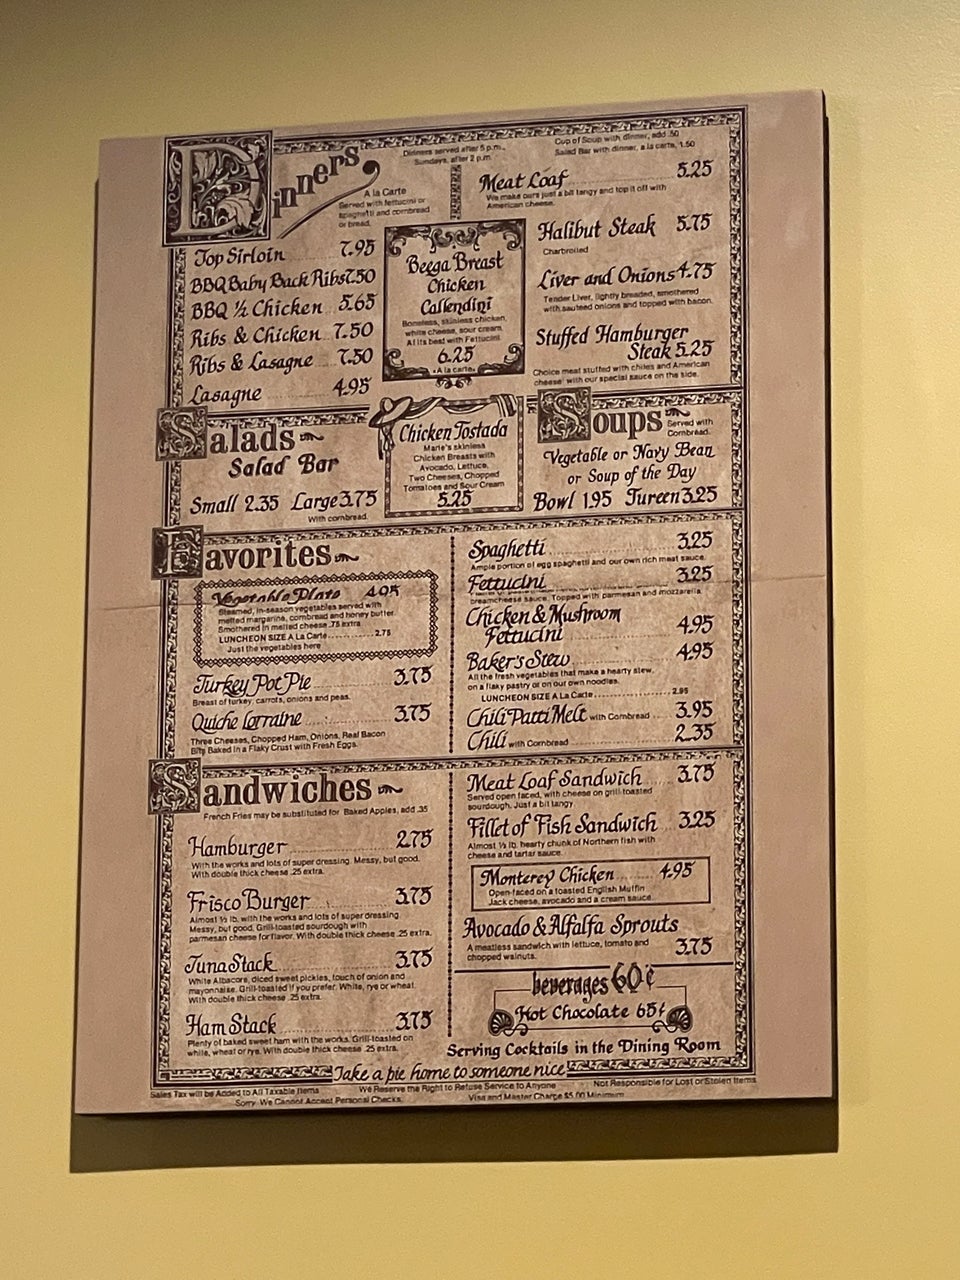 Dinners
Dinners served after 5 p.m.,
Sundays, after 2 p.m.
Cup of Soup with dinner, add .50
Salad Bar with dinner, a la carte, 1.50
A la Carte
Served with fettucini or
spaghetti and cornbread
or bread.
Top Sirloin 7.95
BBQ Baby Back Ribs 7.50
BBQ ½ Chicken 5.65
Ribs & Chicken 7.50
Ribs & Lasagne 7.50
Lasagne 4.95
Beega Breast
Chicken
Callendini
Boneless, skinless chicken,
white cheese, sour cream.
At its best with Fettucini.
6.25
• A la carte •
Meat Loaf 5.25
We make ours just a bit tangy and top it off with
American cheese.
Halibut Steak 5.75
Charbroiled
Liver and Onions 4.75
Tender Liver, lightly breaded, smothered
with sauteed onions and topped with bacon.
Stuffed Hamburger
Steak 5.25
Choice meat stuffed with chiles and American
cheese with our special sauce on the side.
Salads
Salad Bar
Small 2.35 Large 3.75
With cornbread.
Chicken Tostada
Marie's skinless
Chicken Breasts with
Avocado, Lettuce,
Two Cheeses, Chopped
Tomatoes and Sour Cream
5.25
Soups
Served with
Cornbread.
Vegetable or Navy Bean
or Soup of the Day
Bowl 1.95 Tureen 3.25
Favorites
Vegetable Plate 4.95
Steamed, in-season vegetables served with
melted margarine, cornbread and honey butter.
Smothered in melted cheese .75 extra.
LUNCHEON SIZE A La Carte............2.75
Just the vegetables here
Turkey Pot Pie 3.75
Breast of turkey, carrots, onions and peas.
Quiche Lorraine 3.75
Three Cheeses, Chopped Ham, Onions, Real Bacon
Bits Baked in a Flaky Crust with Fresh Eggs.
Spaghetti 3.25
Ample portion of egg spaghetti and our own rich meat sauce.
Fettucini 3.25
creamcheese sauce. Topped with parmesan and mozzarella.
Chicken & Mushroom
Fettucini 4.95
Baker's Stew 4.95
All the fresh vegetables that make a hearty stew,
on a flaky pastry or on our own noodles.
LUNCHEON SIZE A La Carte....................2.95
Chili Patti Melt with Cornbread 3.95
Chili with Cornbread 2.35
Sandwiches
French Fries may be substituted for Baked Apples, add .35
Hamburger 2.75
With the works and lots of super dressing. Messy, but good.
With double thick cheese .25 extra.
Frisco Burger 3.75
Almost ½ lb. with the works and lots of super dressing.
Messy, but good. Grill-toasted sourdough with
parmesan cheese for flavor. With double thick cheese .25 extra.
Tuna Stack 3.75
White Albacore, diced sweet pickles, touch of onion and
mayonnaise. Grill-toasted if you prefer. White, rye or wheat.
With double thick cheese .25 extra.
Ham Stack 3.75
Plenty of baked sweet ham with the works. Grill-toasted on
white, wheat or rye. With double thick cheese .25 extra.
Meat Loaf Sandwich 3.75
Served open faced, with cheese on grill-toasted
sourdough. Just a bit tangy
Fillet of Fish Sandwich 3.25
Almost ½ lb. hearty chunk of Northern fish with
cheese and tartar sauce.
Monterey Chicken 4.95
Open-faced on a toasted English Muffin
Jack cheese, avocado and a cream sauce.
Avocado & Alfalfa Sprouts
A meatless sandwich with lettuce, tomato and
chopped walnuts. 3.75
beverages 60¢
Hot Chocolate 65¢
Serving Cocktails in the Dining Room
Take a pie home to someone nice
Sales Tax will be Added to All Taxable Items
We Reserve the Right to Refuse Service to Anyone
Not Responsible for Lost or Stolen Items
Sorry, We Cannot Accept Personal Checks.
Visa and Master Charge $5.00 Minimum